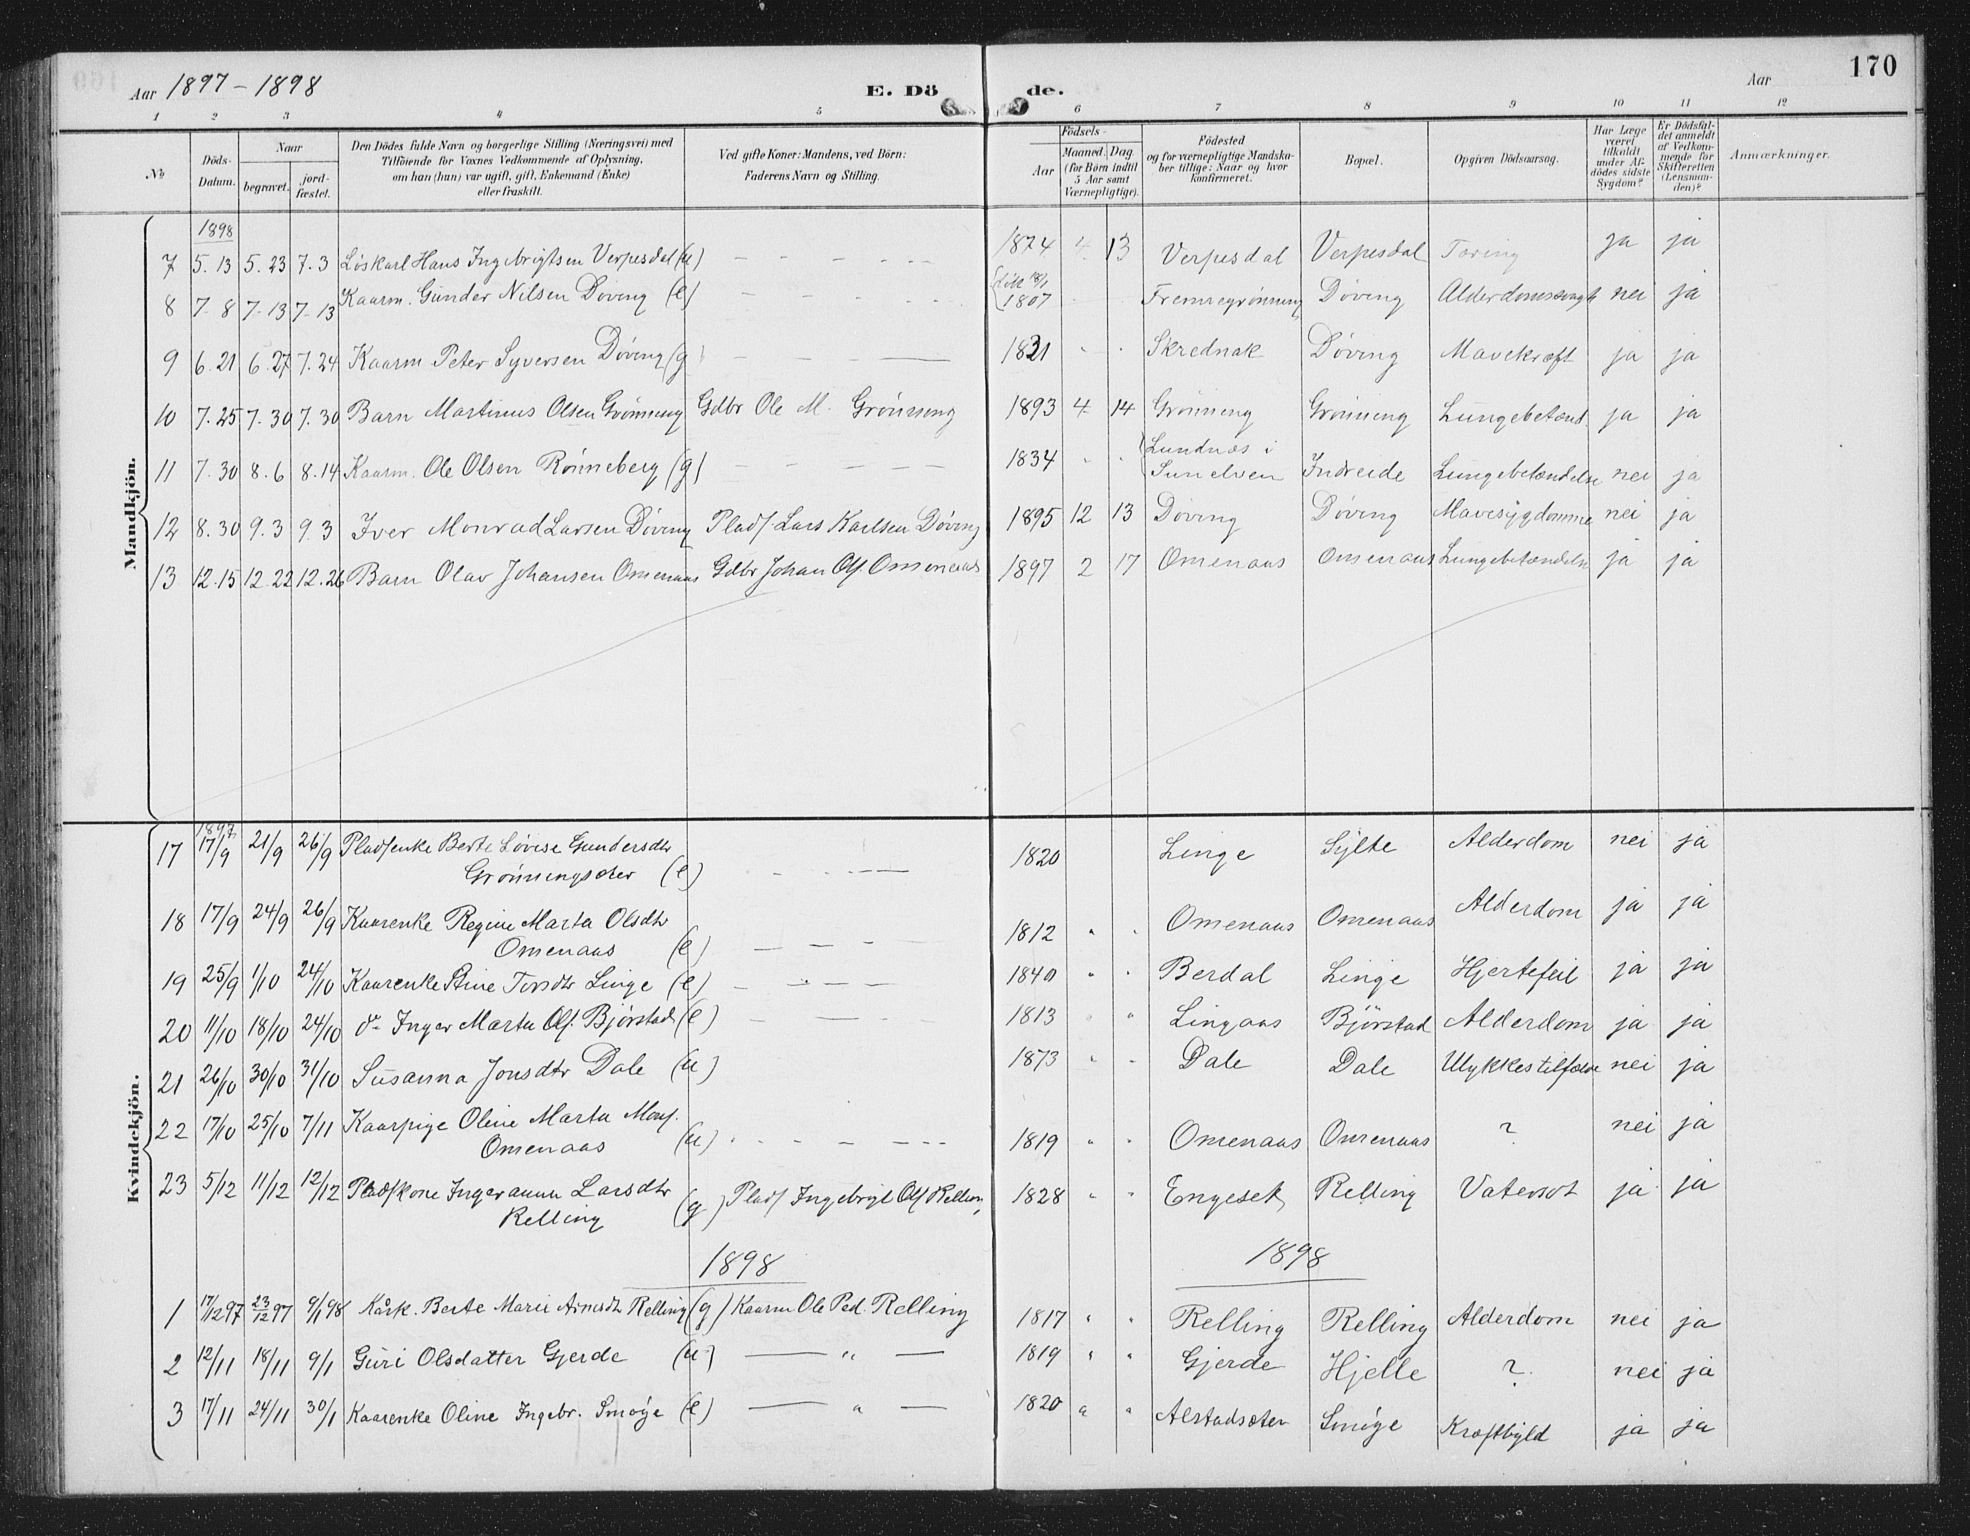 Aar 1897-1898 E. Döde. Aar 170
1 2 3 4 5 6 7 8 9 10 11 12
No
Döds-Datum.
Naar begravet. jordfæstet.
Den Dödes fulde Navn og borgerlige Stilling (Næringsvei) med Tilföiende for Voxnes Vedkommende af Oplysning, om han (hun) var ugift, gift, Enkemand (Enke) eller fraskilt.
Ved gifte Koner: Mandens, ved Börn: Faderens Navn og Stilling.
Födsels-
Aar Maaned. Dag (for Börn indtil 5 Aar samt Værnepligtige).
Födested og for værnepligtige Mandskaber tillige: Naar og hvor konfirmeret.
Bopæl.
Opgiven Dödsaarsag.
Har Læge været tilkaldt under Afdödes sidste Sygdom?
Er Dödsfaldet anmeldt af Vedkommende for Skifteretten (Lensmanden)?
Anmærkninger.
Mandkjön.
1898
7 5.13 5.23 7.3 Löskarl Hans Ingebrigtsen Verpesdal (u) 1824 4 13 Verpesdal Verpesdal Tæring ja ja
8 7.8 7.13 7.13 Kaarm. Gunder Nilsen Döving (e) 1807 Fremregrönning Döving nei ja
9 6.21 6.27 7.24 Kaarm. Peter Syversen Döving (g) 1821 Skrednak Döving Mavekræft ja ja
10 7.25 7.30 7.30 Barn Martinus Olsen Grönning Gdbr Ole M. Grönning 1893 4 14 Grönning Grönning Lungebetænd. ja ja
11 7.30 8.6 8.14 Kaarm. Ole Olsen Rönneberg (g) 1834 Lundnæs i Sunelven Indreide Lungebetændelse nei ja
12 8.30 9.3 9.3 Iver Monrad Larsen Döving Pladf. Lars Karlsen Döving 1895 12 13 Döving Döving Mavesygdomme nei ja
13 12.15 12.22 12.26 Barn Olav Johansen Omenaas Gdbr Johan Ols. Omenaas 1897 2 17 Omenaas Omenaas Lungebetændelse ja ja
Kvindekjön.
1897
17 17/9 21/9 26/9 Pladsenke Berte Lövise Gundersdtr Grönningsæter (e) 1820 Linge Sylte Alderdom nei ja
18 17/9 24/9 26/9 Kaarenke Regine Marta Olsdtr Omenaas (e) 1812 " " Omenaas Omenaas Alderdom ja ja
19 25/9 1/10 24/10 Kaarenke Stine Torsdtr Linge (e) 1840 " " Berdal Linge Hjertefeil ja ja
20 11/10 18/10 24/10 do Inger Marta Ols. Björstad (e) 1813 " " Lingaas Björstad Alderdom ja ja
21 26/10 30/10 31/10 Susanna Jonsdtr Dale (u) 1873 " " Dale Dale Ulykkestilfælde nei ja
22 17/10 25/10 7/11 Kaarpige Oline Marta Mons. Omenaas (u) 1819 " " Omenaas Omenaas ? nei ja
23 5/12 11/12 12/12 Pladskone Ingeranna Larsdtr Relling (g) Plads Ingebrigt Ols Relling 1828 " " Engeset Relling Vatersot ja ja
1898 1898
1 17/12 97 23/12 97 9/1 98 Kårk. Berte Marie Arnesdtr Relling (g) Kaarm Ole Ped. Relling 1817 " " Relling Relling Alderdom nei ja
2 12/11 18/11 9/1 Guri Olsdatter Gjerde (u) " 1819 " " Gjerde Hjelle ? nei ja
3 17/11 24/11 30/1 Kaarenke Oline Ingebr. Smöge (e) " 1820 " " Alstadsæter Smöge Kræftbyld ja ja